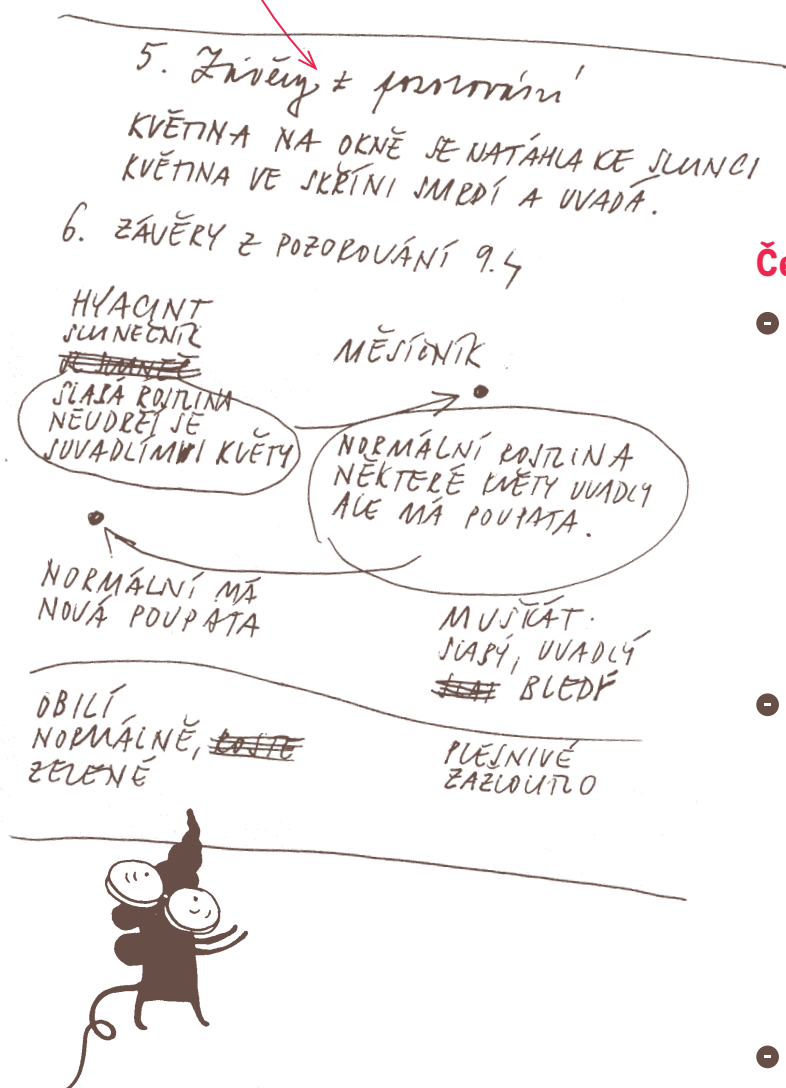 5. Závěry z pozorování
KVĚTINA NA OKNĚ SE NATÁHLA KE SLUNCI
KVĚTINA VE SKŘÍNI SMRDÍ A UVADÁ.
6. ZÁVĚRY Z POZOROVÁNÍ 9.4
HYACINT
SLUNEČNÍK
SLABÁ ROSTLINA
NEUDRŽÍ SE
SUVADLÍMI KVĚTY
MĚSÍČNÍK
NORMÁLNÍ ROSTLINA
NĚKTERÉ KVĚTY UVADLY
ALE MÁ POUPATA.
NORMÁLNÍ MÁ
NOVÁ POUPATA
MUŠKÁT.
SLABÝ, UVADLÝ
BLEDÝ
OBILÍ
NORMÁLNĚ, ROSTE
ZELENÉ
PLESNIVÉ
ZAŽLOUTLO
Če